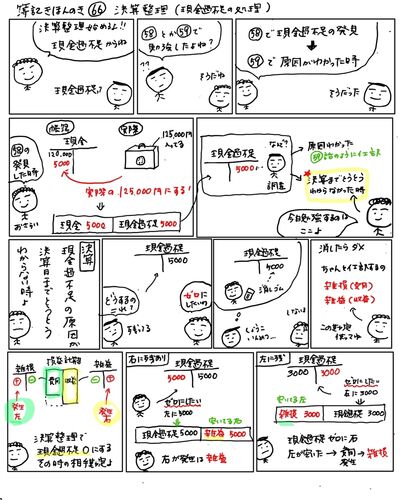 簿記きほんのき 66 決算整理 (現金過不足の処理)
決算整理始めるよ!!
現金過不足からね
現金過不足?
58 とか 59 で
勉強したよね?
そうだね
58 で現金過不足の発見
59 で原因がわかった時
そうだった
58 の
発見
した時
おさらい
帳簿
現金
120,000
5000
実際
125,000円
入ってる
実際の125,000円にする!
現金 5000 現金過不足 5000
現金過不足
5000
なんで?
調査
原因わかった
決算までとうとう
わからなかった時
今日勉強するのは
ここよ
決算
現金過不足の原因が
決算日までとうとう
わからない時よ
現金過不足
5000
どうするの
これ?
ゼロに
したいの
現金過不足
5000
消しゴム
しないよ
消したらダメ
ちゃんと仕訳するの
雑損(費用)
雑益(収益)
雑損
損益計算書
雑益
費用
収益
発生
左
発生
右
決算整理で
現金過不足0にする
その時の相手勘定よ
右に5000あり
現金過不足
5000 5000
ゼロにしたい
左に5000
空いてる右
現金過不足 5000 雑益 5000
右が発生は雑益
現金過不足
3000 3000
ゼロにしたい
空いてる左
雑損 3000 現金過不足 3000
現金過不足ゼロに右
左が空いた→費用→雑損
発生